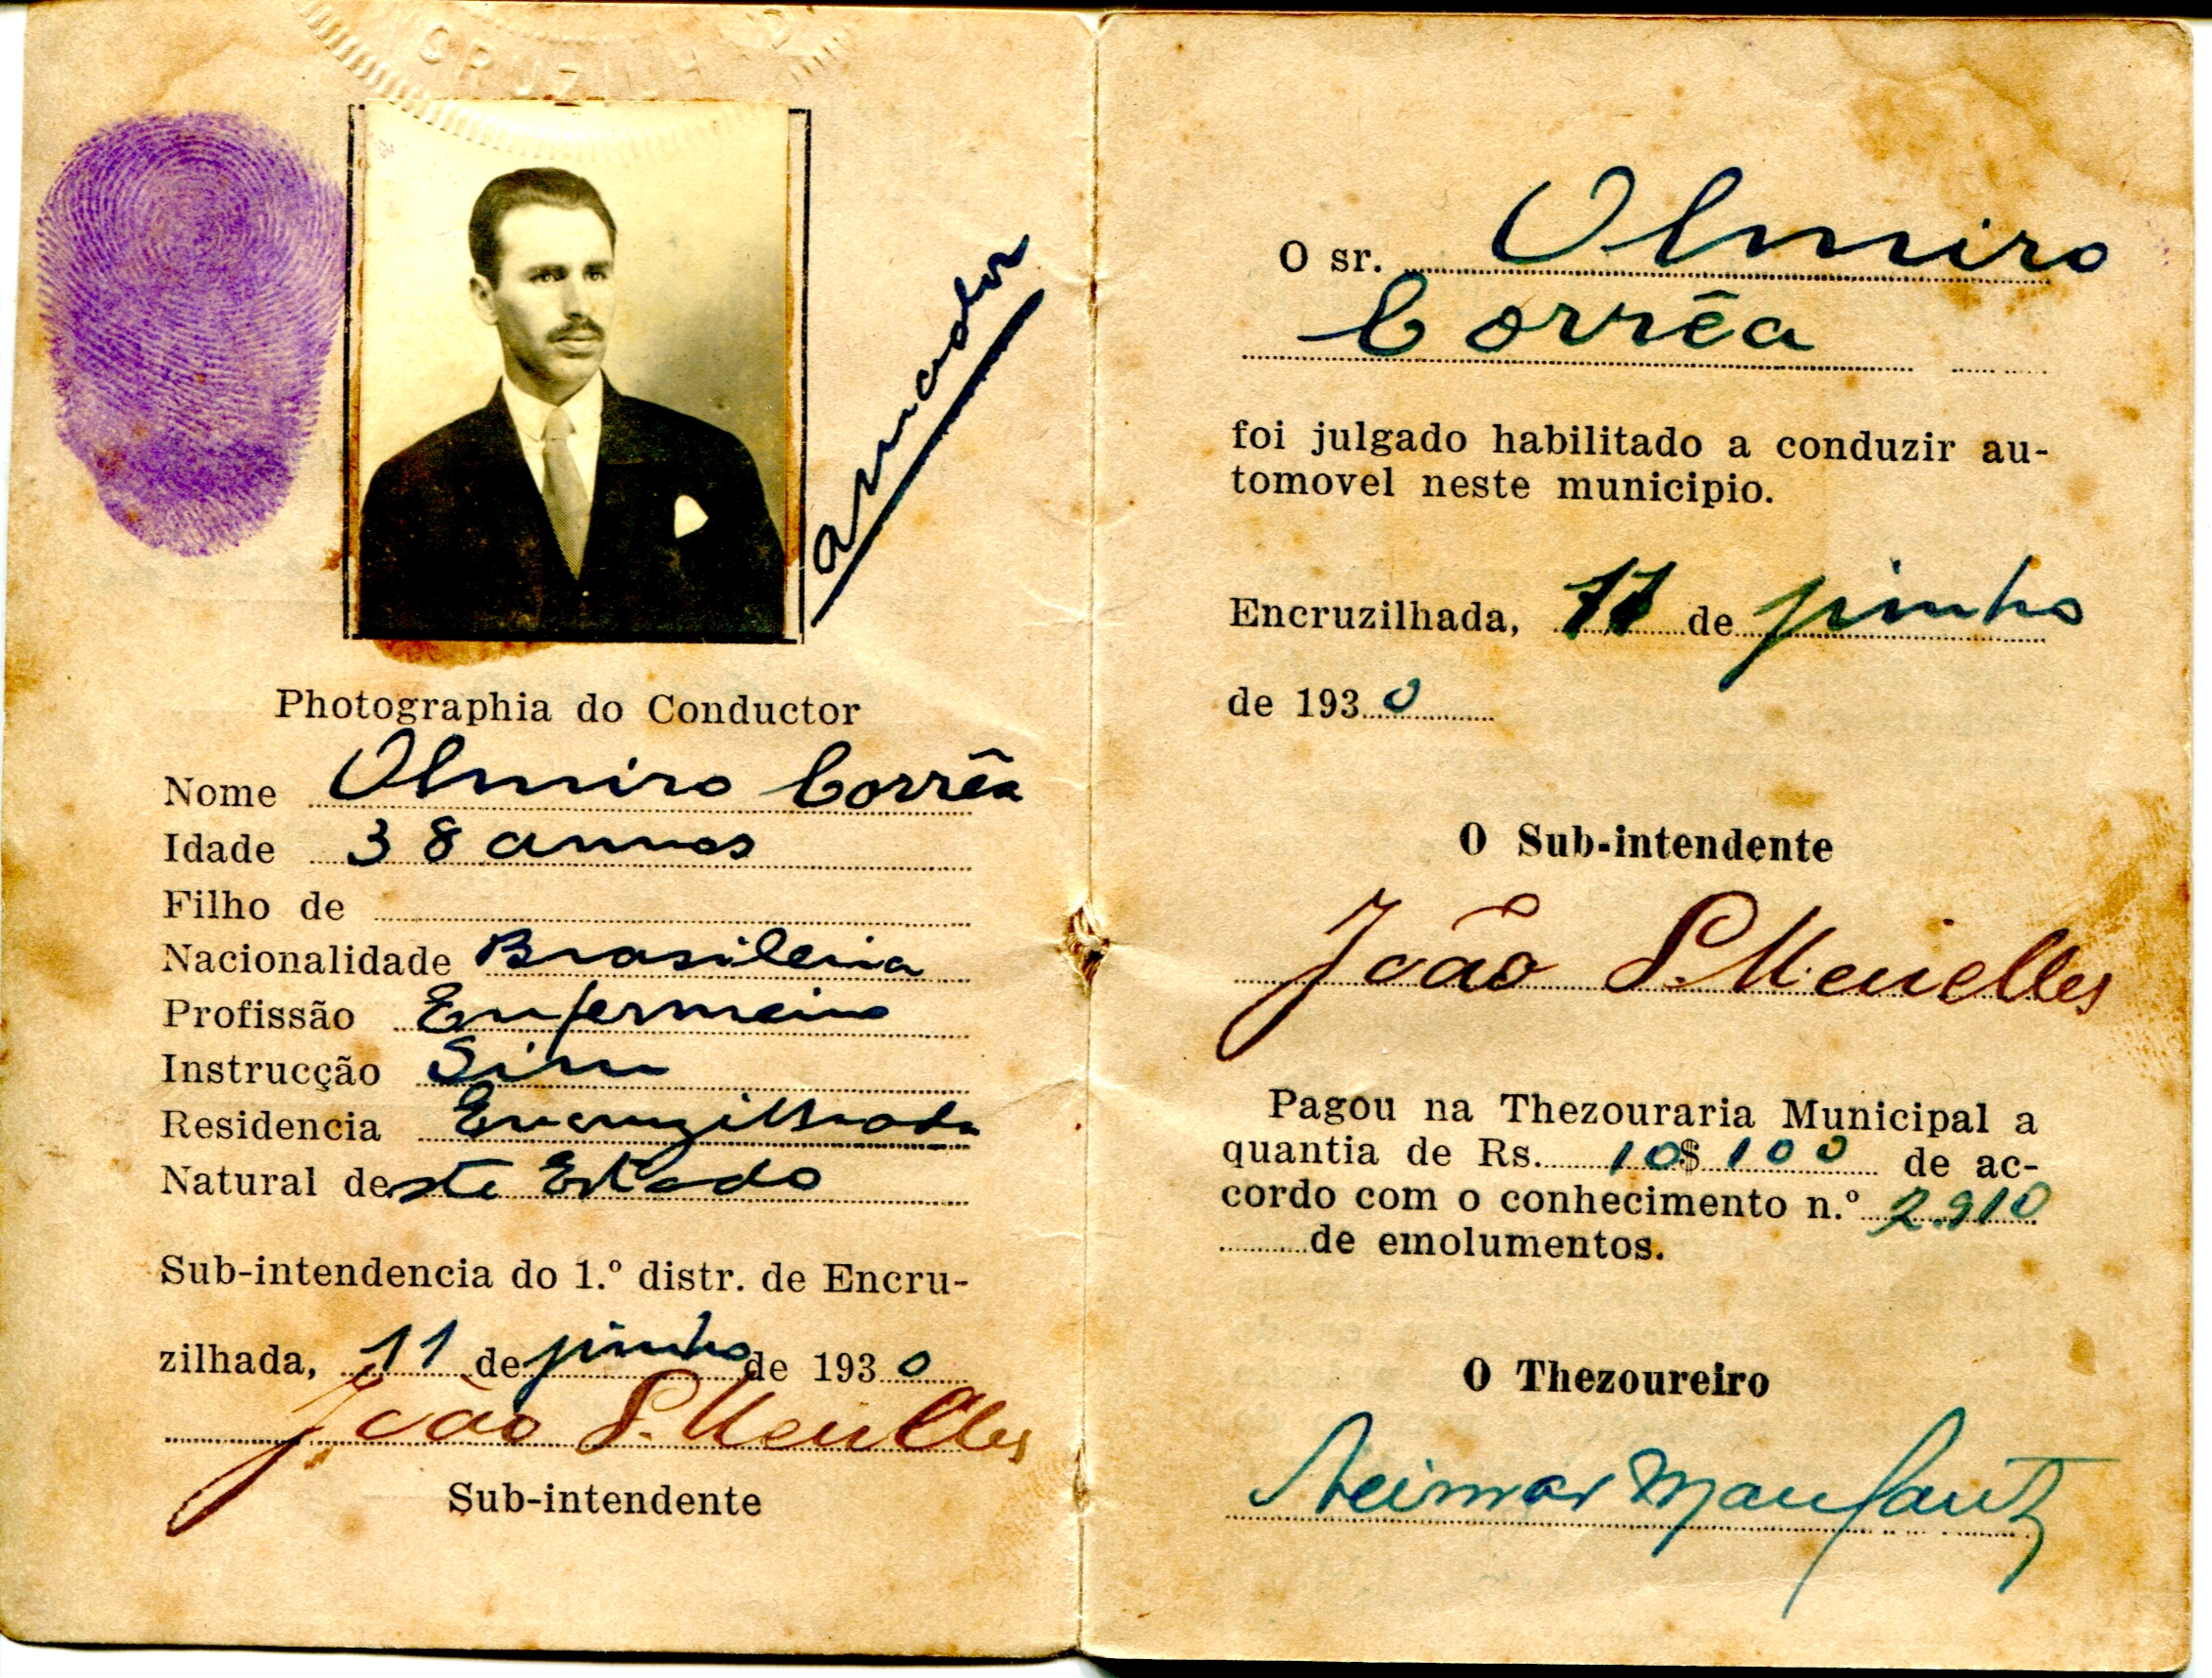 CRUZILH
amador
Photographia do Conductor
Nome Olmiro Corrêa
Idade 38 annos
Filho de
Nacionalidade Brasileira
Profissão Enfermeiro
Instrucção Sim
Residencia Encruzilhada
Natural deste Estado
Sub-intendencia do 1.º distr. de Encru-
zilhada, 11 de junho de 1930
João S. Meirelles
Sub-intendente
O sr. Olmiro
Corrêa
foi julgado habilitado a conduzir au-
tomovel neste municipio.
Encruzilhada, 11 de junho
de 1930
O Sub-intendente
João S. Meirelles
Pagou na Thezouraria Municipal a
quantia de Rs. 10$100 de ac-
cordo com o conhecimento n.º 2.910
de emolumentos.
O Thezoureiro